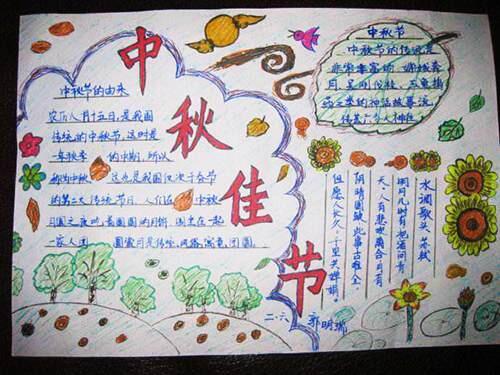 中秋佳节
中秋节的由来
农历八月十五日,是我国
传统的中秋节,这时是
一年秋季的中期,所以
称为中秋
这也是我国仅次于春节
的第二大传统节日,人们在中秋
一家人团圆
中秋节
中秋节的传说是
非常丰富的,嫦娥奔
月,吴刚伐桂,玉兔捣
药之类的神话故事流
水调歌头 苏轼
明月几时有,把酒问青
天。人有悲欢离合,月有
阴晴圆缺,此事古难全。
但愿人长久,千里共婵娟。
二.六
郭明瑞